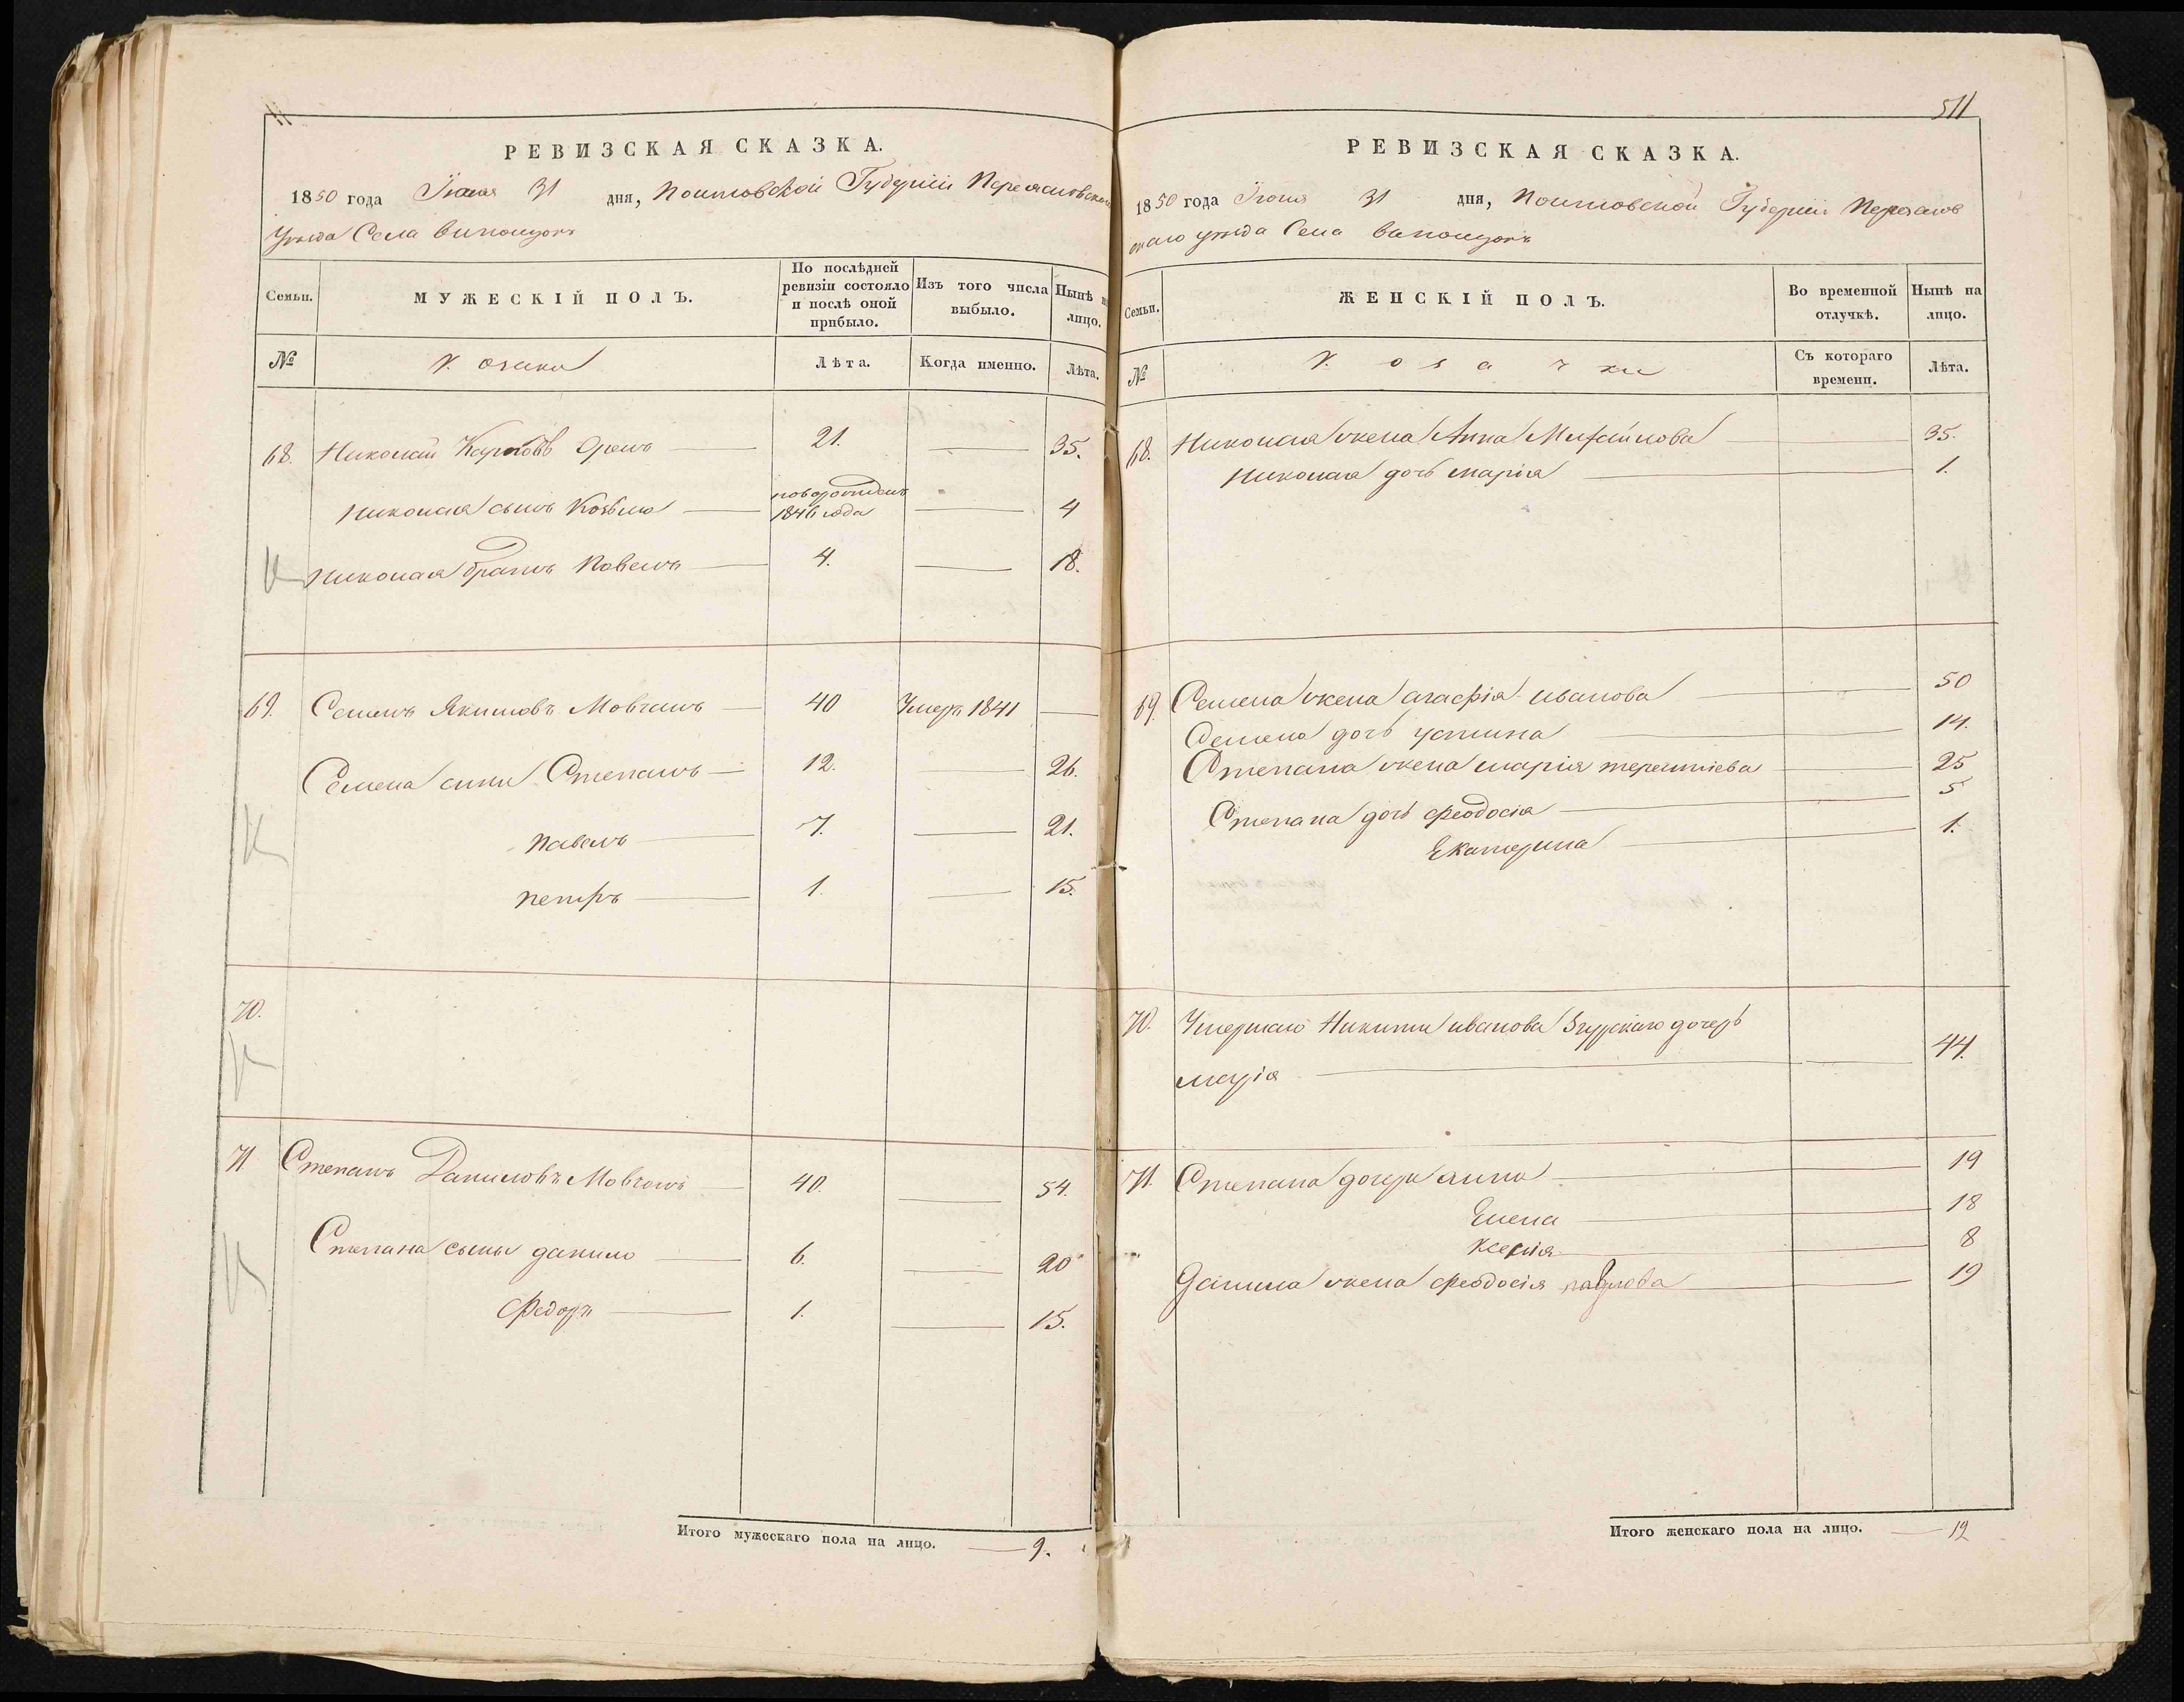 РЕВИЗСКАЯ СКАЗКА.
1850 года Іюля 31 дня, Полтовской Губерніи Переясловскаго
Уезда Села Виползокъ
Семьи.
МУЖЕСКІЙ ПОЛЪ.
По послѣдней ревизіи состояло и послѣ оной прибыло.
Изъ того числа выбыло.
Нынѣ на лицо.
№
Козаки
Лѣта.
Когда именно.
Лѣта.
68. Николай Карповъ 21. 35.
Николая сынъ Козьма новорожденъ 1846 года 4
Николая братъ Повелъ 4. 18.
69. Семенъ Якимовъ Мовчанъ 40 Умеръ 1841
Семена сини Степанъ 12. 26.
павелъ 7. 21.
петръ 1. 15.
70.
71 Степанъ Даниловъ Мовчанъ 40. 54.
Степана сыны данило 6. 20
Федоръ 1. 15.
Итого мужескаго пола на лицо. 9.
511
РЕВИЗСКАЯ СКАЗКА.
1850 года Іюля 31 дня, Полтовской Губерніи Переяслов
скаго уезда Села Виползокъ
Семьи.
ЖЕНСКІЙ ПОЛЪ.
Во временной отлучкѣ.
Нынѣ на лицо.
№
Козачки
Съ котораго времени.
Лѣта.
68. Николая жена Анна Михайлова 35.
Николая дочь марія 1.
69. Семена жена агафія иванова 50
Семена дочь устина 14.
Степана жена марія терентіева 25
Степана дочь феодосія 5
Екатерина 1.
70. Умершаго Никити иванова Згурскаго дочерь
марія 44.
71. Степана дочери анна 19
Елена 18
Ксенія 8
Данила жена феодосія павлова 19
Итого женскаго пола на лицо. 12